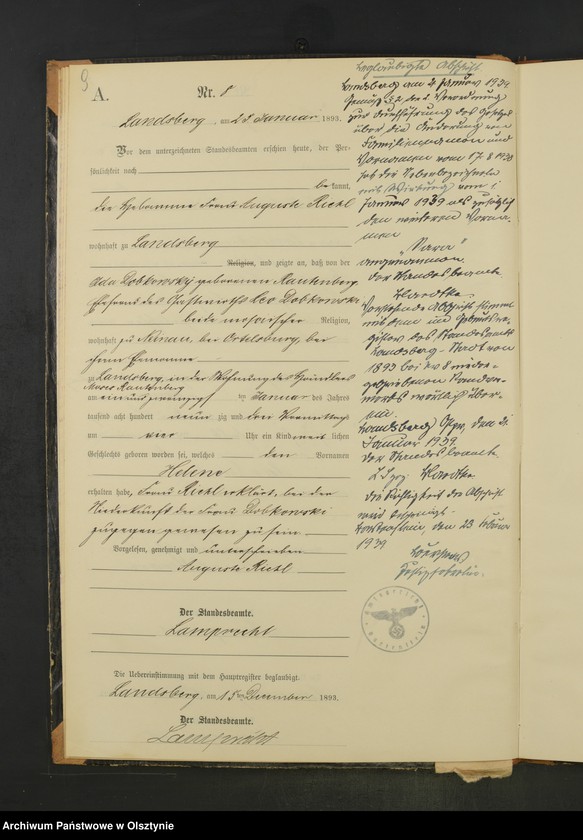 9
A.
Nr. 8
Landsberg, am 23 Januar 1893.
Vor dem unterzeichneten Standesbeamten erschien heute, der Per-
sönlichkeit nach
be kannt,
die Hebamme Frau Auguste Riehl
wohnhaft zu Landsberg
Religion, und zeigte an, daß von der
Ada Dobkowsky geborenen Rautenberg
Ehefrau des Gastwirths Leo Dobkowski
beide mosaischer Religion,
wohnhaft zu bei Ortelsburg, bei
ihrem Ehemanne
zu Landsberg, in der Wohnung des Händlers
Rautenberg
am ein und zwanzigsten Januar des Jahres
tausend acht hundert neun zig und drei Vormittags
um vier Uhr ein Kind weib lichen
Geschlechts geboren worden sei, welches den Vornamen
Helene
erhalten habe, Frau Riehl erklärt, bei der
Niederkunft der Frau Dobkowski
zugegen gewesen zu sein.
Vorgelesen, genehmigt und unterschrieben
Auguste Riehl
Der Standesbeamte.
Lamprecht
Die Uebereinstimmung mit dem Hauptregister beglaubigt.
Landsberg, am 15ten December 1893.
Der Standesbeamte.
Lamprecht
Beglaubigte Abschrift
Landsberg am 21 Januar 1939.
Gemäß § 2 der 2. Verordnung
zur Durchführung des Gesetzes
über die Änderung von
Familiennamen und
Vornamen vom 17.8.1938
hat die Nebenbezeichnete
mit Wirkung vom 1.
Januar 1939 als zusätzlich
den weiteren Vorna-
men
"Sara"
angenommen.
Der Standesbeamte
Vorstehende Abschrift stimmt
mit dem im Geburtsre-
gister des Standesamts
Landsberg - Stadt von
1893 bei
wörtlich über-
ein.
Landsberg Ostpr., den 21.
Januar 1939.
Der Standesbeamte
Die Richtigkeit der Abschrift
wird
Bartenstein, den 23 Februar
1939
Archiwum Państwowe w Olsztynie